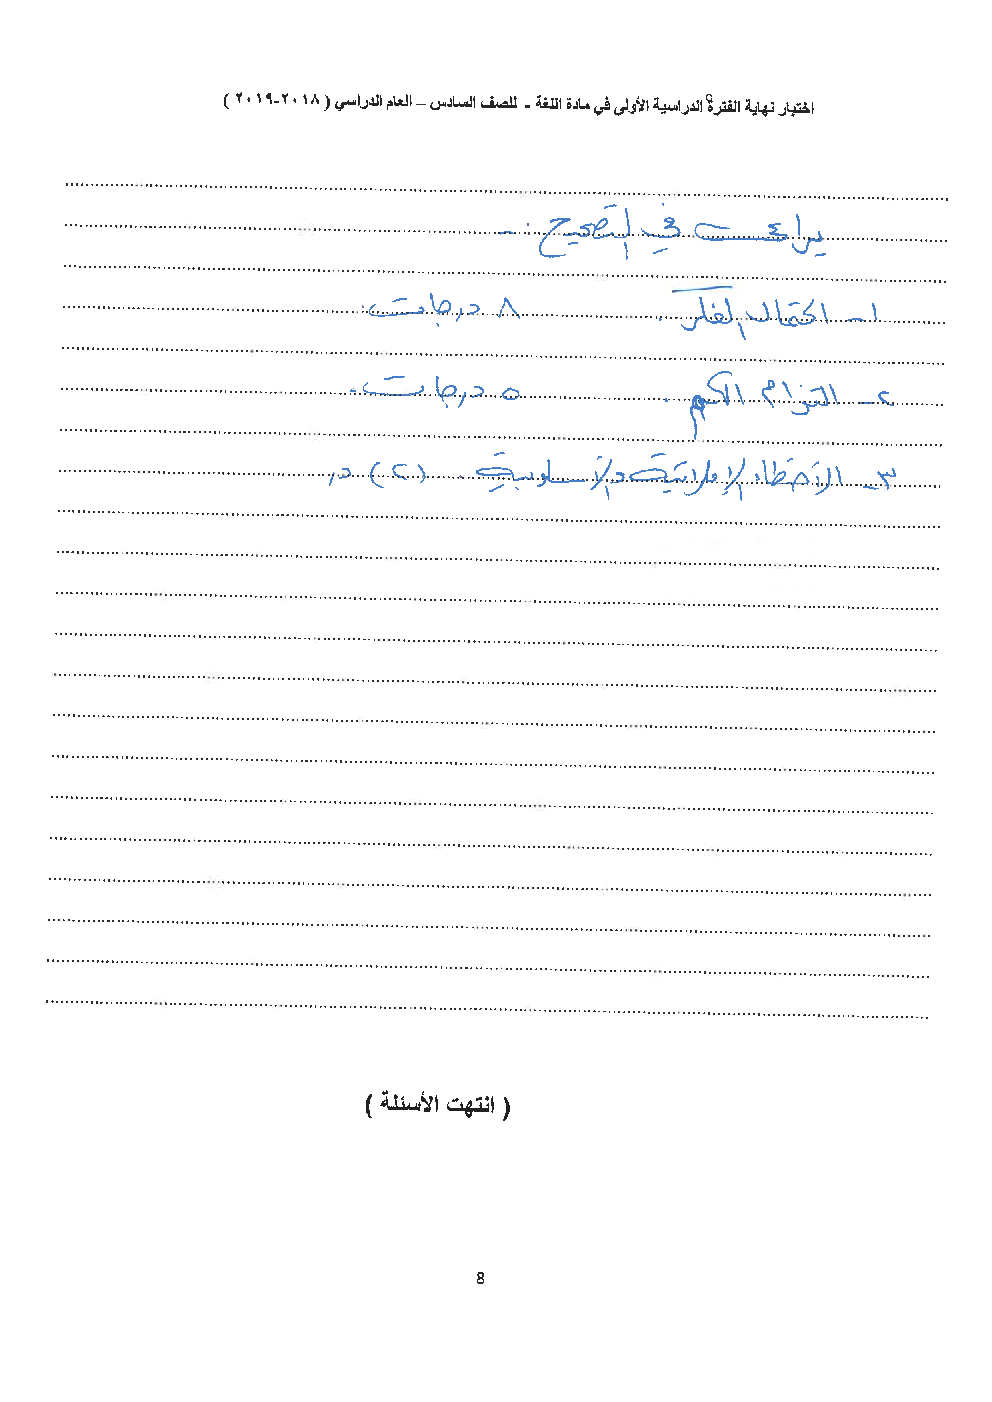 اختبار نهاية الفترة الدراسية الأولى في مادة اللغة - للصف السادس – العام الدراسي ( ٢٠١٨-٢٠١٩ )
يراعى في التصحيح :-
١- اكتمال الفكر . ٨ درجات .
٢- التزام الكم . ٥ درجات .
٣- الأخطاء الإملائية والأسلوبية . (٢) د.
( انتهت الأسئلة )
8